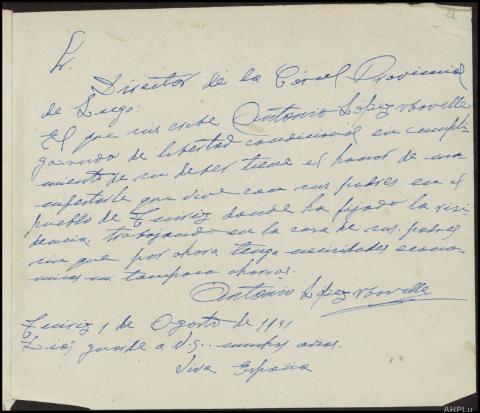 Sr.
Director de la Cárcel Provincial
de Lugo:
El que suscribe Antonio López
gozando de libertad condicional en cumpli-
miento de su deber tiene el honor de ma-
nifestarle que vive con sus padres en el
pueblo de donde ha fijado la resi-
dencia, trabajando en la casa de sus padres
sin que por ahora tenga necesidades econo-
micas ni tampoco ahorros.
Antonio López
1 de Agosto de 1941
Dios guarde a V.S. muchos años.
Viva España
AHPLu